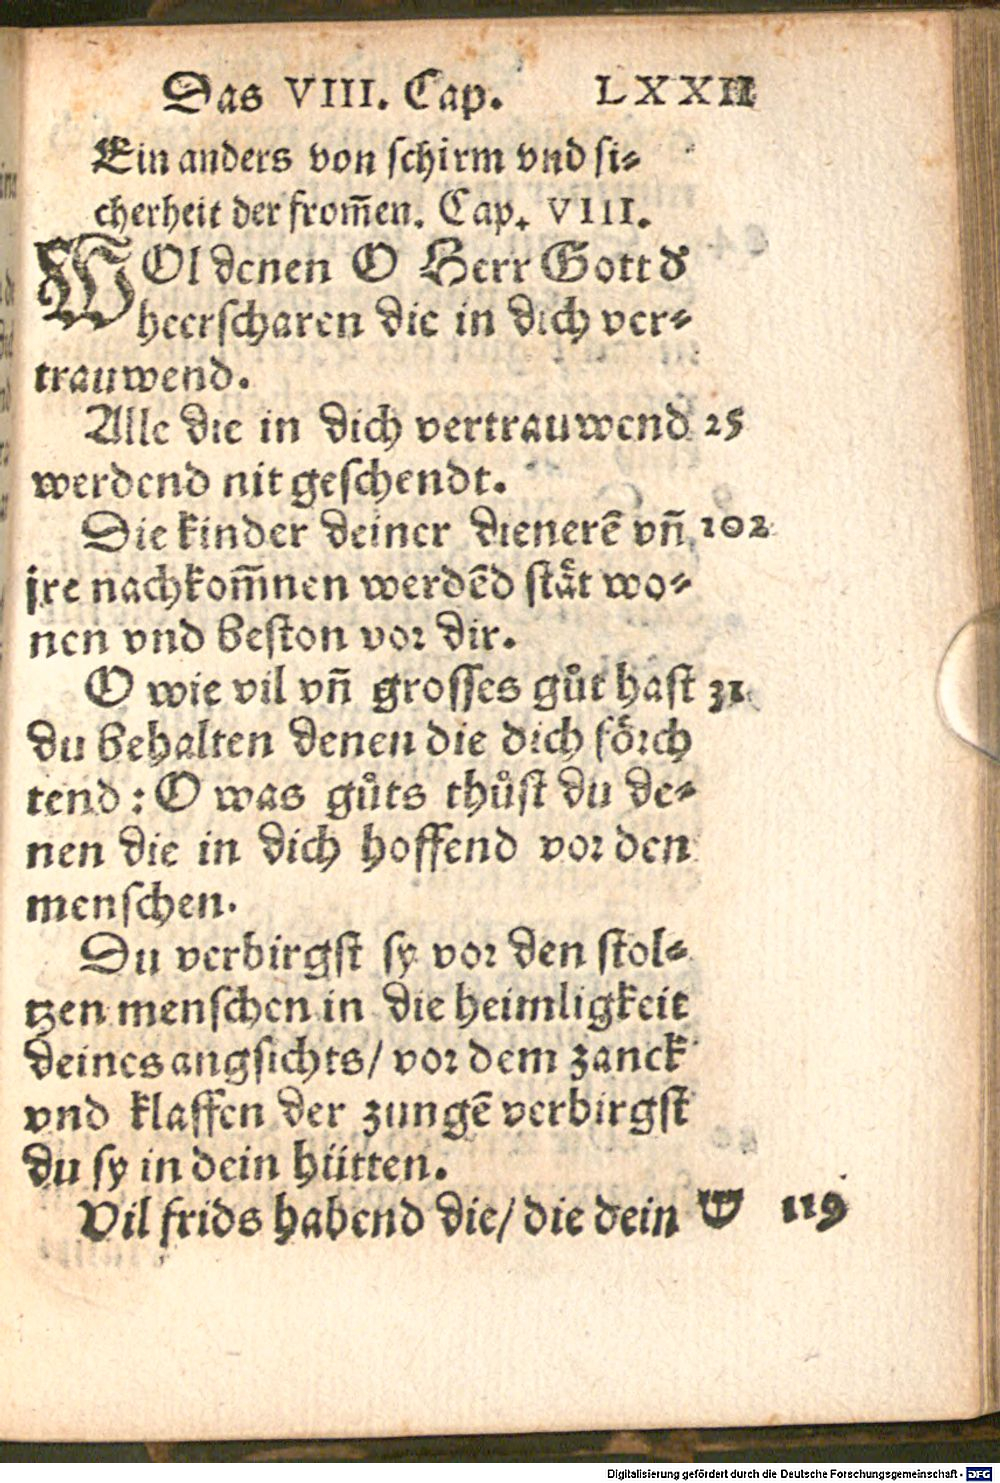 Das VIII. Cap. LXXII
Ein anders von schirm vnd si⸗
cherheit der from̃en. Cap. VIII.
WOl denen O Herr Gott d̕
heerscharen die in dich ver⸗
trauwend.
Alle die in dich vertrauwend 25
werdend nit geschendt.
Die kinder deiner dienerẽ vñ 102
jre nachkom̃nen werdẽd staͤt wo⸗
nen vnd beston vor dir.
O wie vil vñ grosses guͦt hast 31
du behalten denen die dich foͤrch
tend: O was guͦts thuͦst du de⸗
nen die in dich hoffend vor den
menschen.
Du verbirgst sy vor den stol⸗
tzen menschen in die heimligkeit
deines angsichts/ vor dem zanck
vnd klaffen der zungẽ verbirgst
du sy in dein hütten.
Vil frids habend die/ die dein ש 119
Digitalisierung gefördert durch die Deutsche Forschungsgemeinschaft - DFG